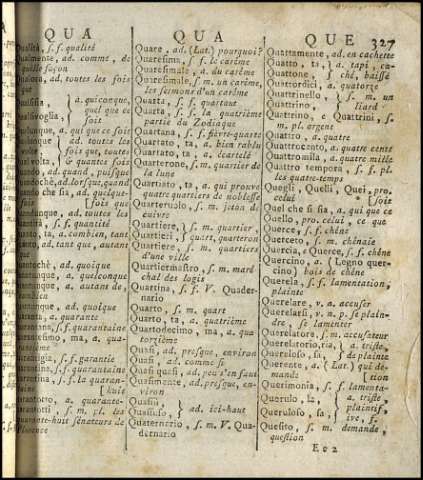 QUA QUA QUE 327
Qualità, s. f. qualité
Qualmente, ad. comme, de
quelle façon
Qualora, ad. toutes les fois
que
Qualsisia, a. quiconque,
quel que ce
soit
Qualsivoglia,
Qualunque, a. qui que ce soit
ad. toutes les
fois que, toutes
& quantes fois
ad. quand, puisque
ad. lorsque, quand
che sia, ad. quelque-
fois
ad. toutes les
s. f. quantité
ta, a. combien, tant
ad. tant que, autant
que
ad. quoique
a. quiconque
a. autant de
ad. quoique
a. quarante
s. f. quarantaine
ma, a. qua-
s. f. garantie
s. f. quarantaine
s. f. la quaran-
taine
a. quarante-
huit
s. m. pl. les
quarante-huit sénateurs de
Florence
Quare, ad. (Lat.) pourquoi?
Quaresima, s. f. le carême
Quaresimale, a. du carême
Quaresimale, s. m. un carême,
les sermons d'un carême
Quarta, s. f. quartaut
Quarta, s. f. la quatrième
partie du Zodiaque
Quartana, s. f. fièvre-quarte
Quartato, ta, a. bien rablu
Quartato, ta, a. écartelé
Quarterone, s. m. quartier de
la lune
Quartato, ta, a. qui prouve
quatre quartiers de noblesse
Quarteruolo, s. m. jeton de
cuivre
Quartiere, s. m. quartier
Quartieri, s. quart, quarteron
Quartiere, s. m. quartiers
d'une ville
Quartiermastro, s. m. maré
chal des logis
Quartina, s. f. V. Quader-
nario
Quarto, s. m. quart
Quarto, ta, a. quatrième
Quartodecimo, ma, a. qua
torzième
Quasi, ad. presque, environ
Quasi, ad. comme si
Quasi quasi, ad. peu s'en faut
Quasimente, ad. presque, en-
viron
Quassù,
Quassuso, ad. ici-haut
Quaternario, s. m. V. Qua-
dernario
Quattamente, ad. en cachette
Quatto, ta, a. tapi, ca-
Quattone, ché, baissé
Quattordici, a. quatorze
Quattrinello, s. m. un
Quattrino, liard
Quattrino, e Quattrini, s.
m. pl. argent
Quattro, a. quatre
Quattrocento, a. quatre cents
Quattromila, a. quatre mille
Quattro tempora, s. f. pl.
les quatre-temps
Quegli, Quelli, Quei, pro.
celui
[soit
Quel che si sia, a. qui que ce
Quello, pro. celui, ce
Querce, s. f. chêne
Querceto, s. m. chênaie
Quercia, e Querce, s. f. chêne
Quercino, a. (Legno quer-
cino) bois de chêne
Querela, s. f. lamentation,
plainte
Querelare, v. a. accuser
Querelarsi, v. n. p. se plain-
dre, se lamenter
Querelatore, s. m. accusateur
Querelatorio, ria, a. triste,
Quereloso, sa, de plainte
Querente, a. (Lat.) qui de-
mande
Querimonia, s. f. lamenta-
tion
Querulo, la, a. triste,
plaintif,
Queruloso, sa, ive, f.
Quesito, s. m. demande,
question
E e 2